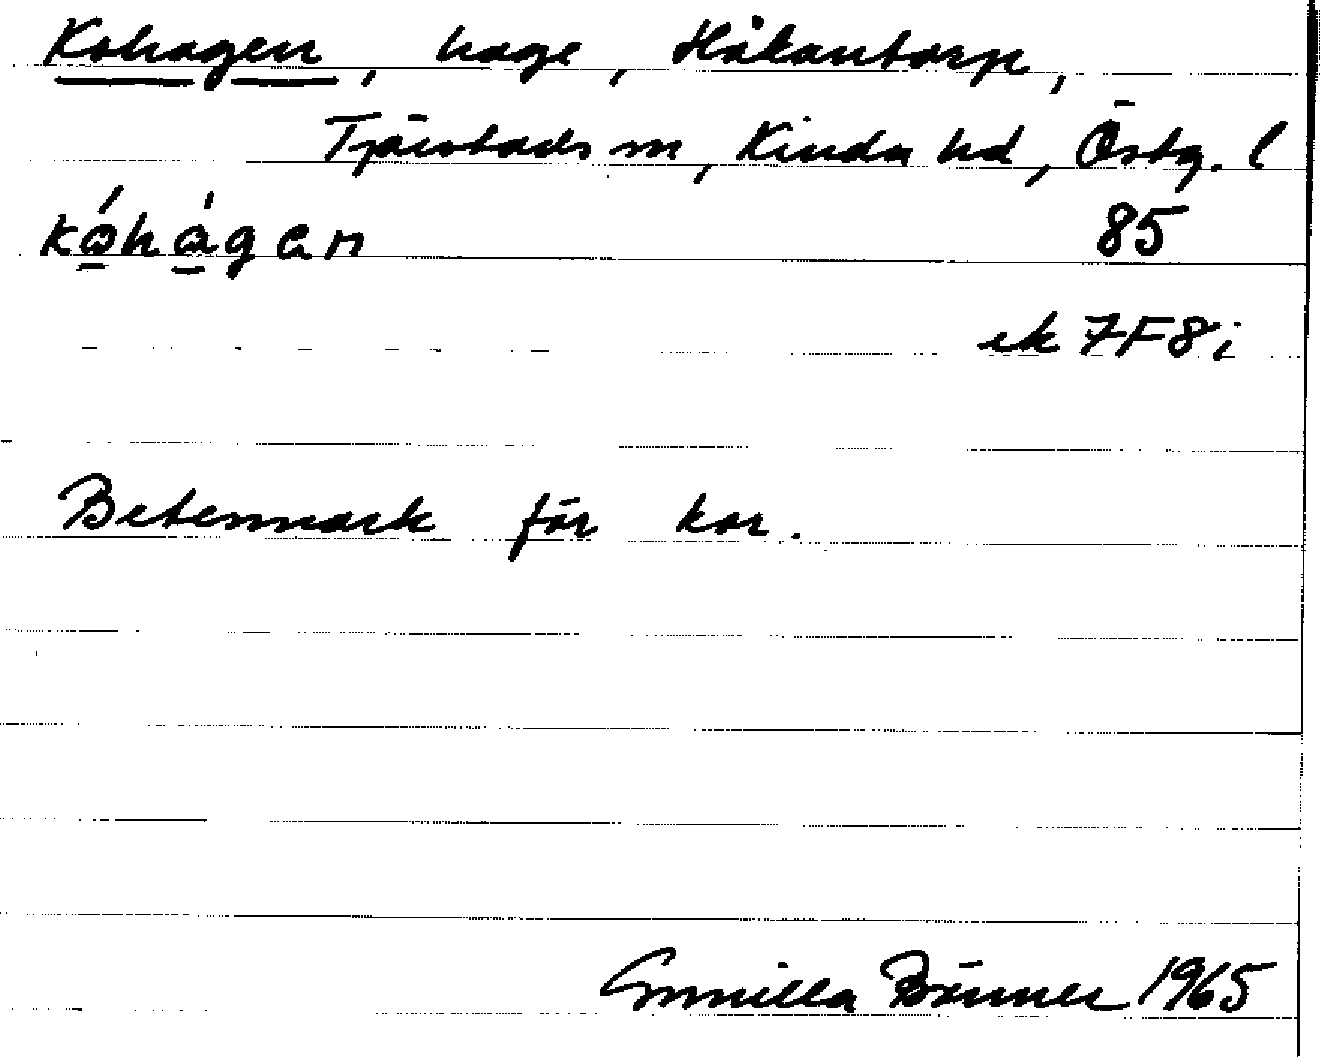 Kohagen, hage, Håkantorp,
Tjärstads sn, Kinda hd, Östg. l
kóhàgan 85
ek 7F8i
Betesmark för kor.
Gunilla Bönner 1965